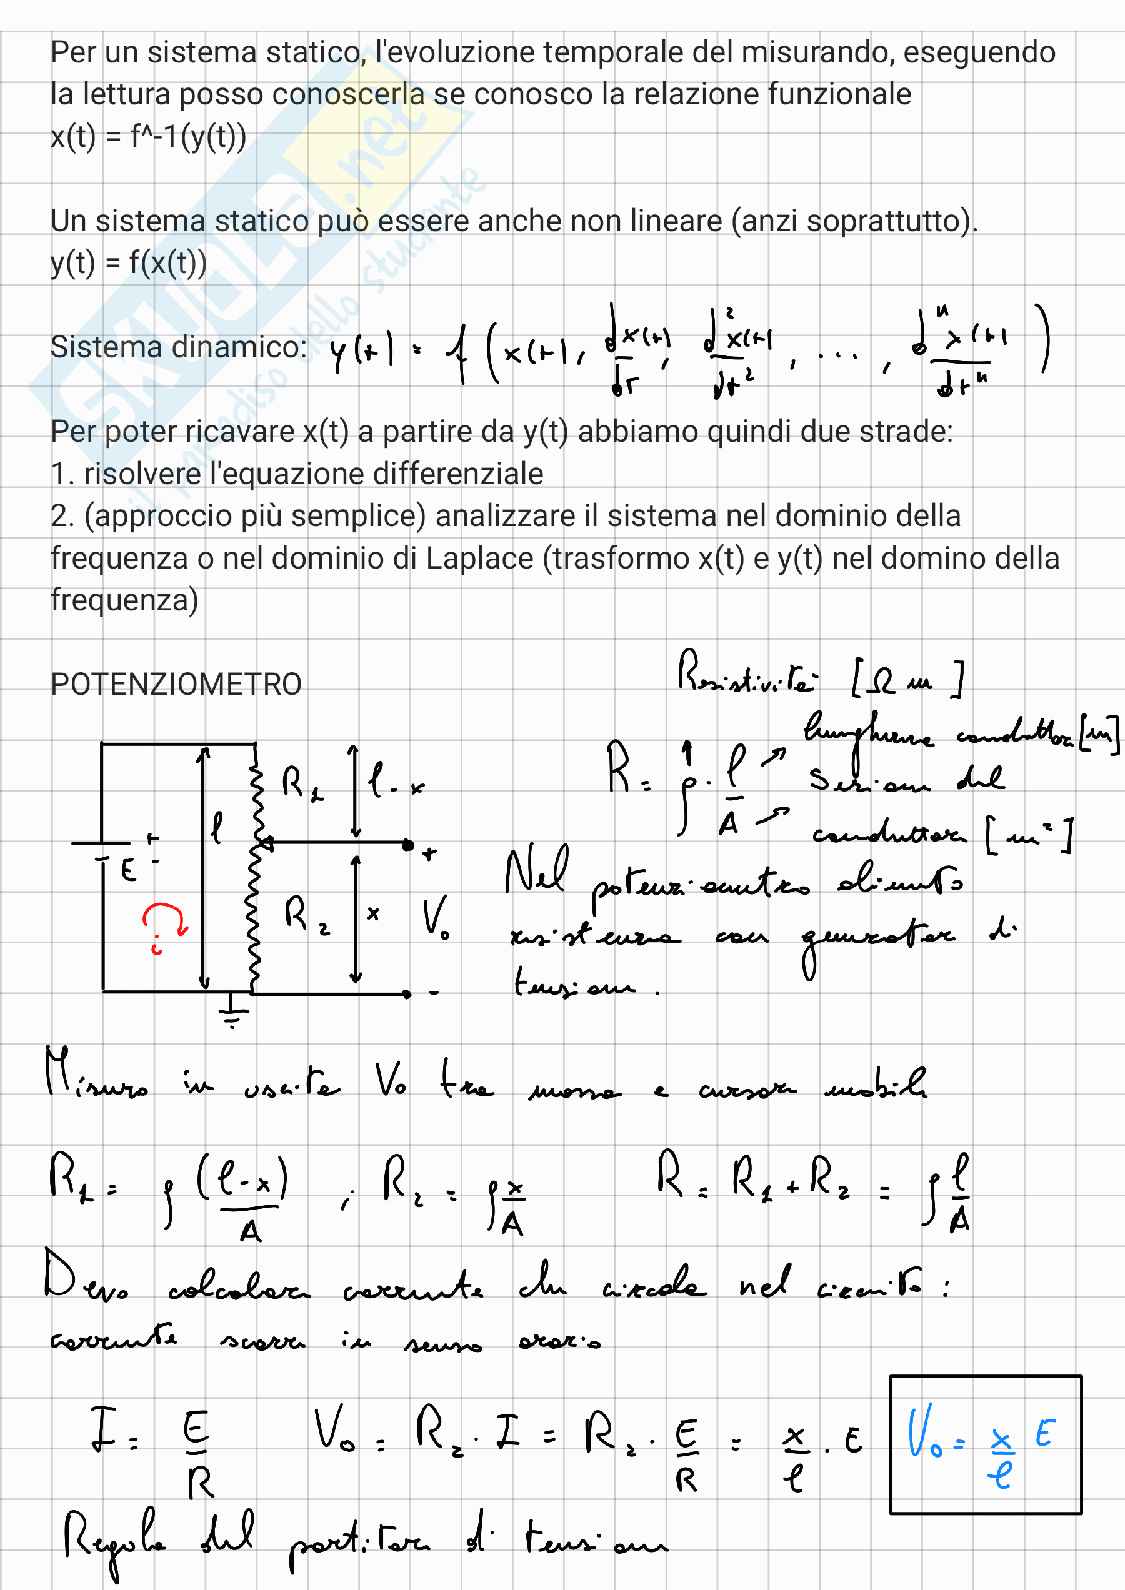 Per un sistema statico, l'evoluzione temporale del misurando, eseguendo
la lettura posso conoscerla se conosco la relazione funzionale
x(t) = f^-1(y(t))
Un sistema statico può essere anche non lineare (anzi soprattutto).
y(t) = f(x(t))
Sistema dinamico: y(t) = f (x(t), dx(t)/dt, d²x(t)/dt², ..., dⁿx(t)/dtⁿ)
Per poter ricavare x(t) a partire da y(t) abbiamo quindi due strade:
1. risolvere l'equazione differenziale
2. (approccio più semplice) analizzare il sistema nel dominio della
frequenza o nel dominio di Laplace (trasformo x(t) e y(t) nel domino della
frequenza)
POTENZIOMETRO
Resistività [Ω m]
R = ρ · l/A
lunghezza conduttore [m]
Sezione del
conduttore [m²]
E + -
i
l
R1
l - x
R2
x
+
V0
-
Nel potenziometro alimento
resistenza con generatore di
tensione.
Misuro in uscita V0 tra massa e cursore mobile
R1 = ρ (l-x)/A ; R2 = ρ x/A R = R1 + R2 = ρ l/A
Devo calcolare corrente che circola nel circuito:
corrente scorre in senso orario
I = E/R V0 = R2 · I = R2 · E/R = x/l · E V0 = x/l E
Regola del partitore di tensione
SKUOLA.net
il paradiso dello studente